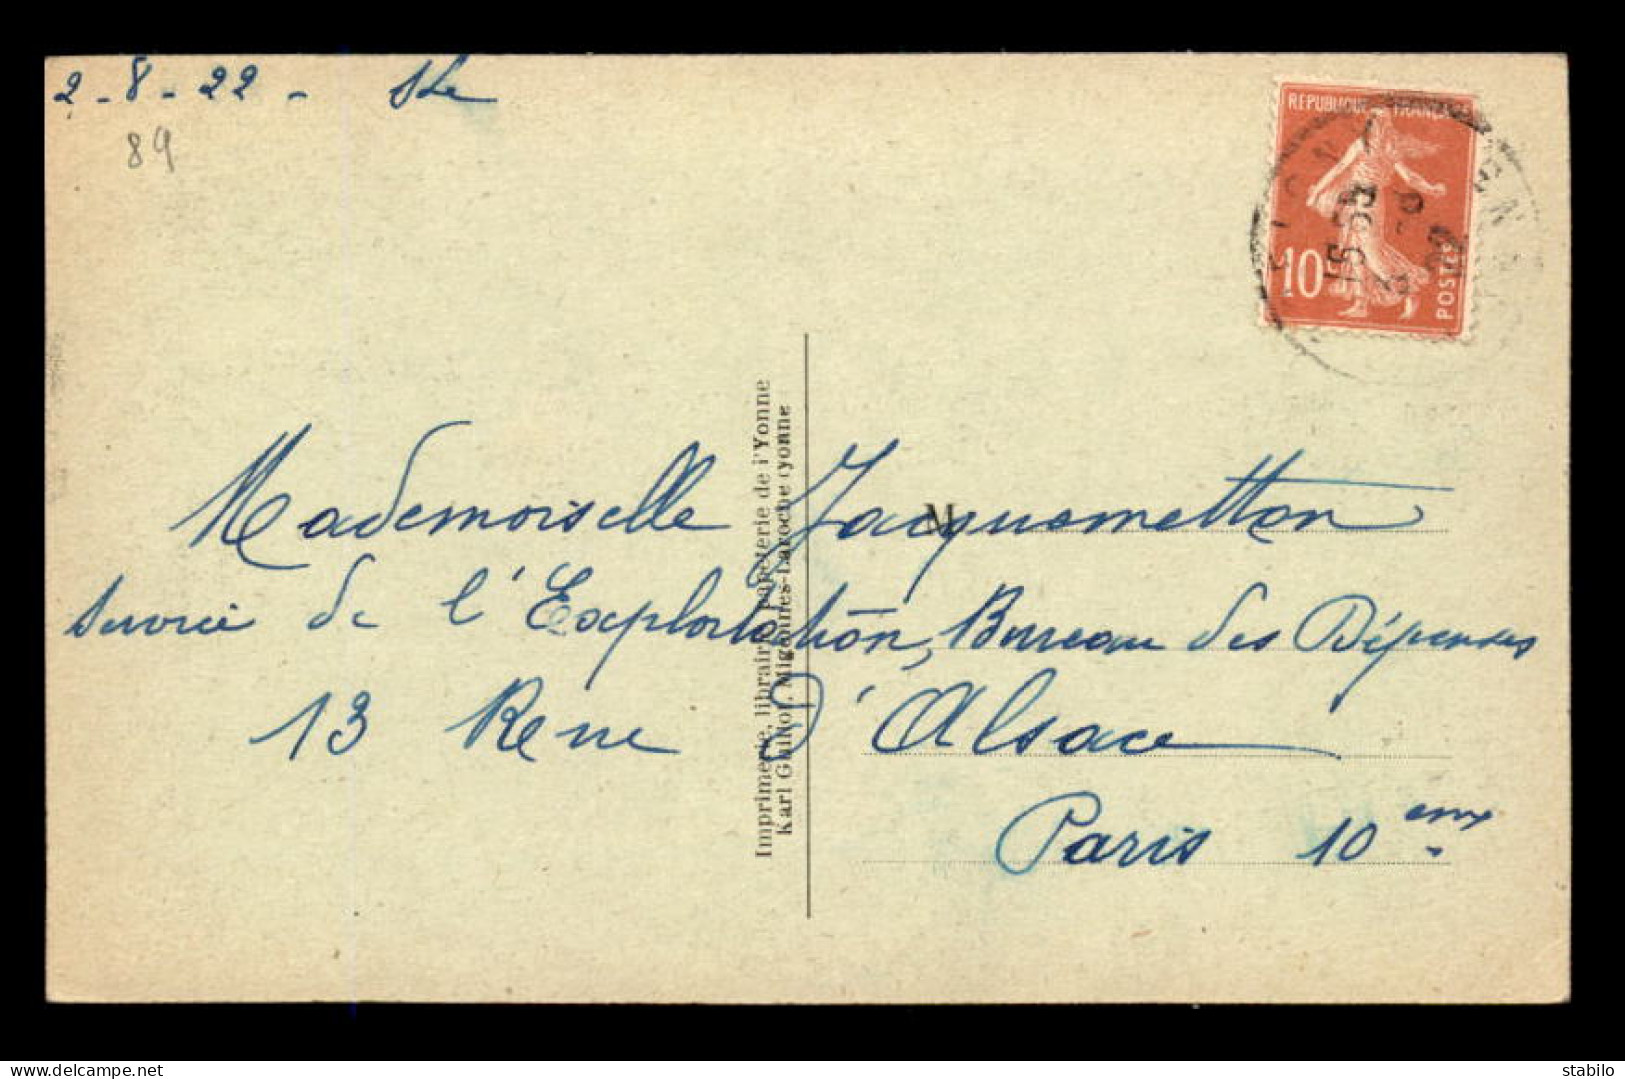 2-8-22-
89
RÉPUBLIQUE FRANÇAISE
10c
POSTES
15 35
Mademoiselle Jacquemetton
N
Service de l'Exploitation, Bureau des Dépenses
13 Rue d'Alsace
Paris 10eme
Imprimerie, librairie, papeterie de l'Yonne
Karl Guillot, Migennes-Laroche (yonne
delcampe.net
stabilo